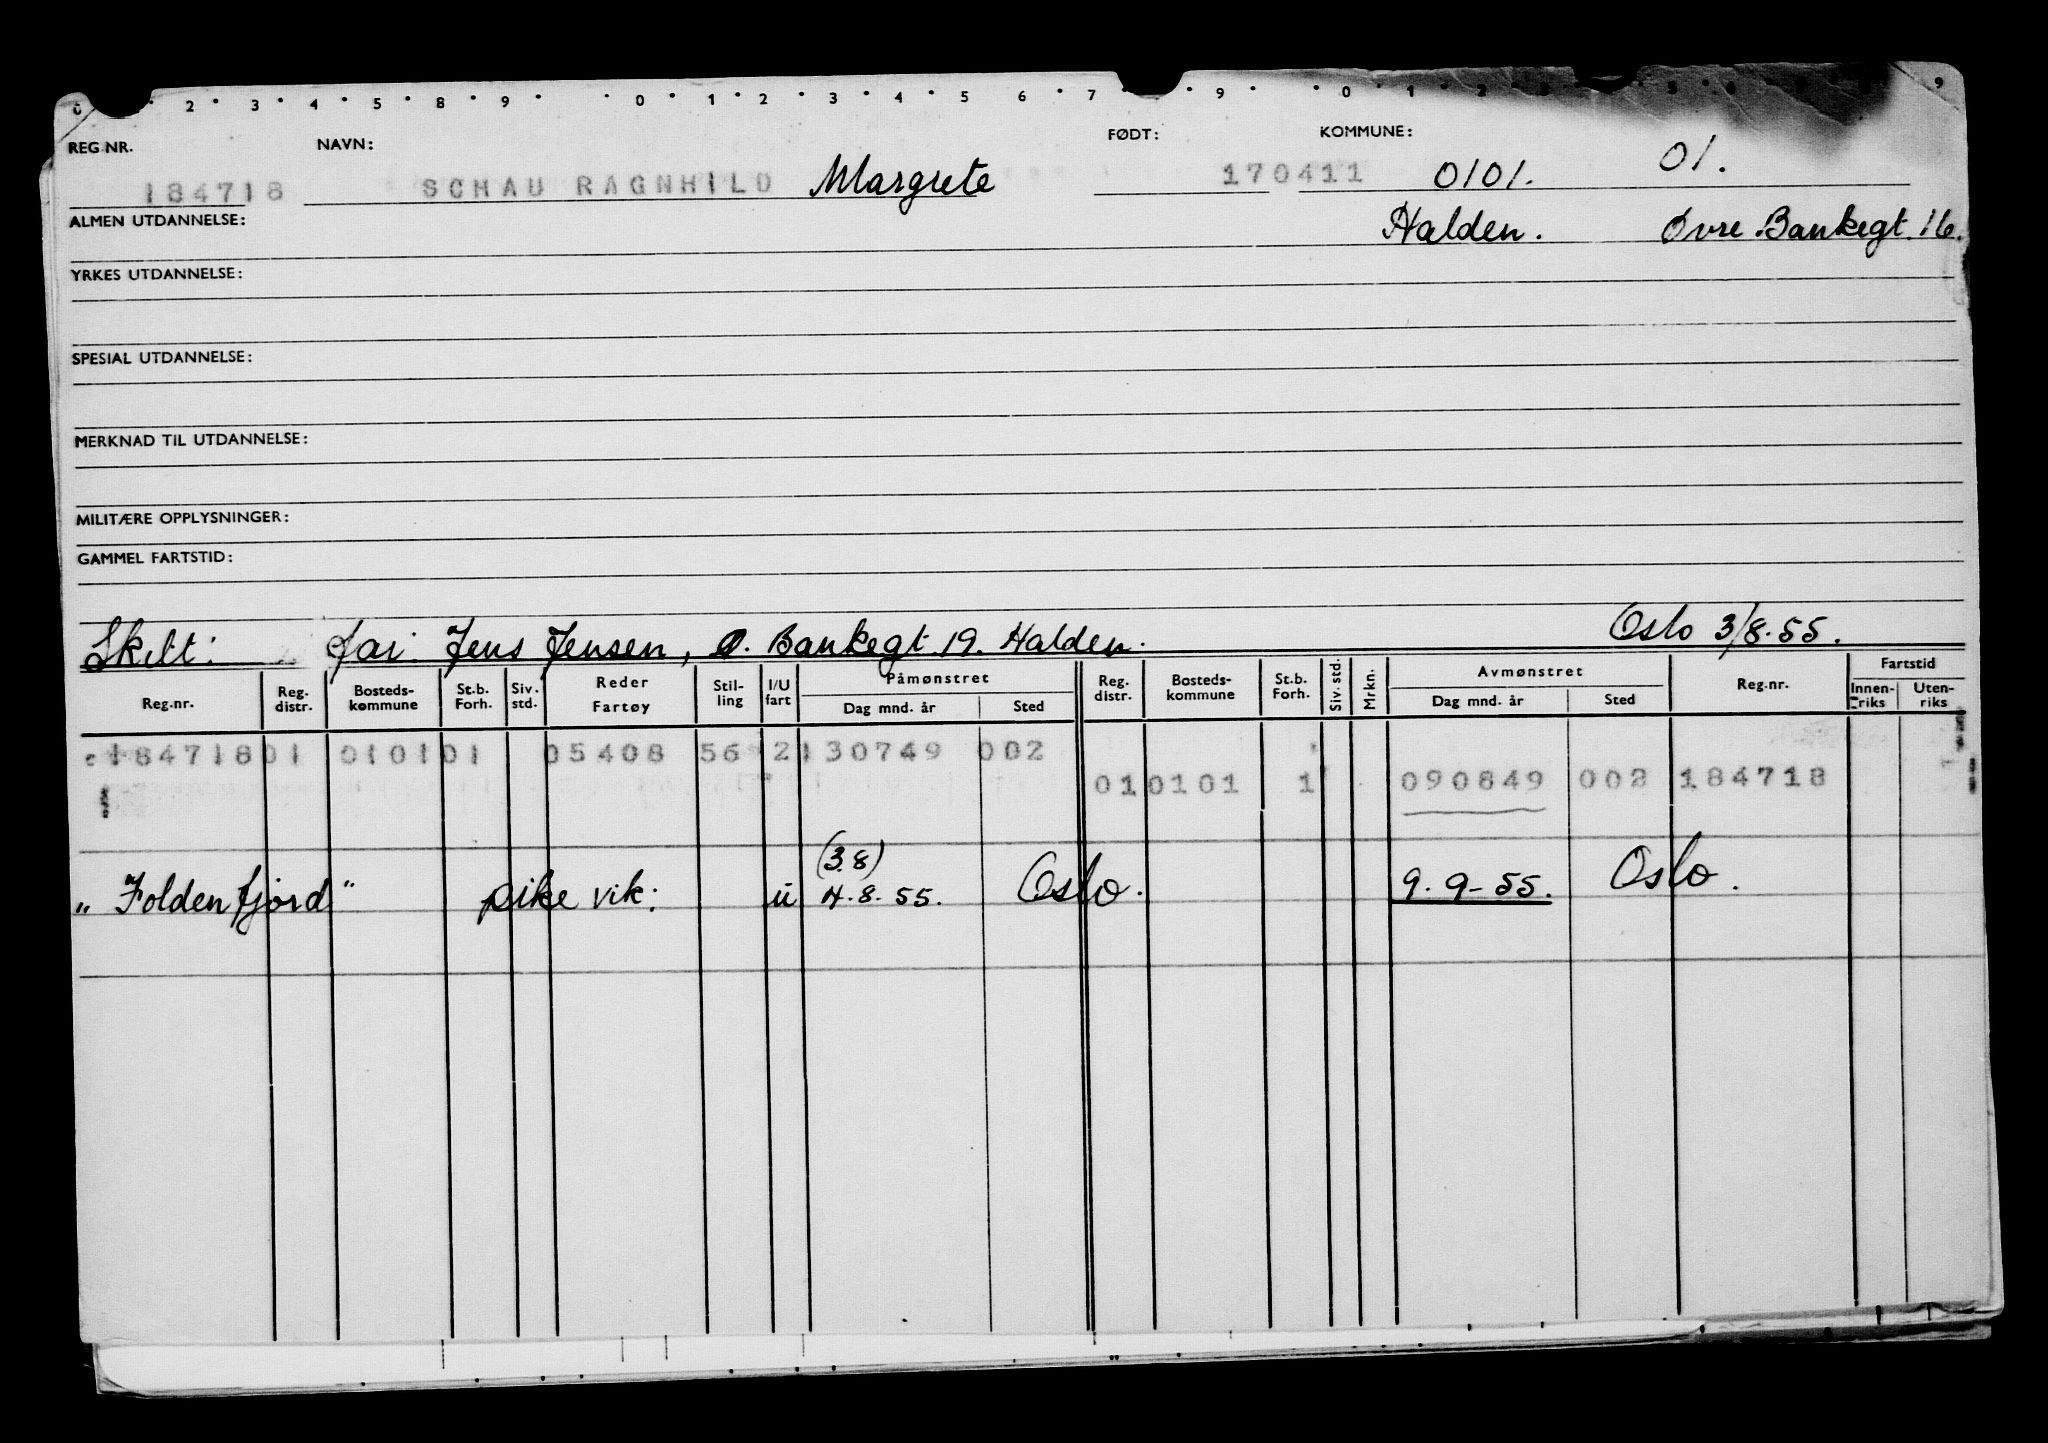 0 2 3 4 5 8 9 0 1 2 3 4 5 6 7 9 0 1 2 9
REG NR. NAVN: FØDT: KOMMUNE:
184718 SCHAU RAGNHILD Margrete 170411 0101. 01.
ALMEN UTDANNELSE: Halden. Øvre Bankegt. 16.
YRKES UTDANNELSE:
SPESIAL UTDANNELSE:
MERKNAD TIL UTDANNELSE:
MILITÆRE OPPLYSNINGER:
GAMMEL FARTSTID:
Skilt: far: Jens Jensen, Ø. Bankegt. 19. Halden. Oslo 3/8-55.
Reg.nr. Reg. distr. Bosteds-kommune St.b. Forh. Siv. std. Reder Fartøy Stil-ling I/U fart Påmønstret Dag mnd. år Sted Reg. distr. Bosteds-kommune St.b. Forh. Siv. std. Mrkn. Avmønstret Dag mnd. år Sted Reg.nr. Fartstid Innen-riks Uten-riks
184718 01 0101 01 05408 56 2 130749 002
01 0101 1 090849 002 184718
(3.8)
"Foldenfjord" pike vik: u 4.8.55. Oslo. 9.9-55. Oslo.